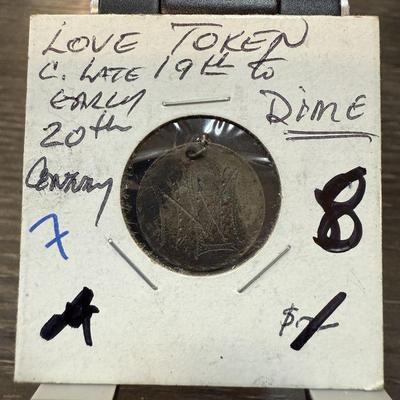 LOVE TOKEN
C. LATE 19th to
EARLY
20th
CENTURY
DIME
7
8
$